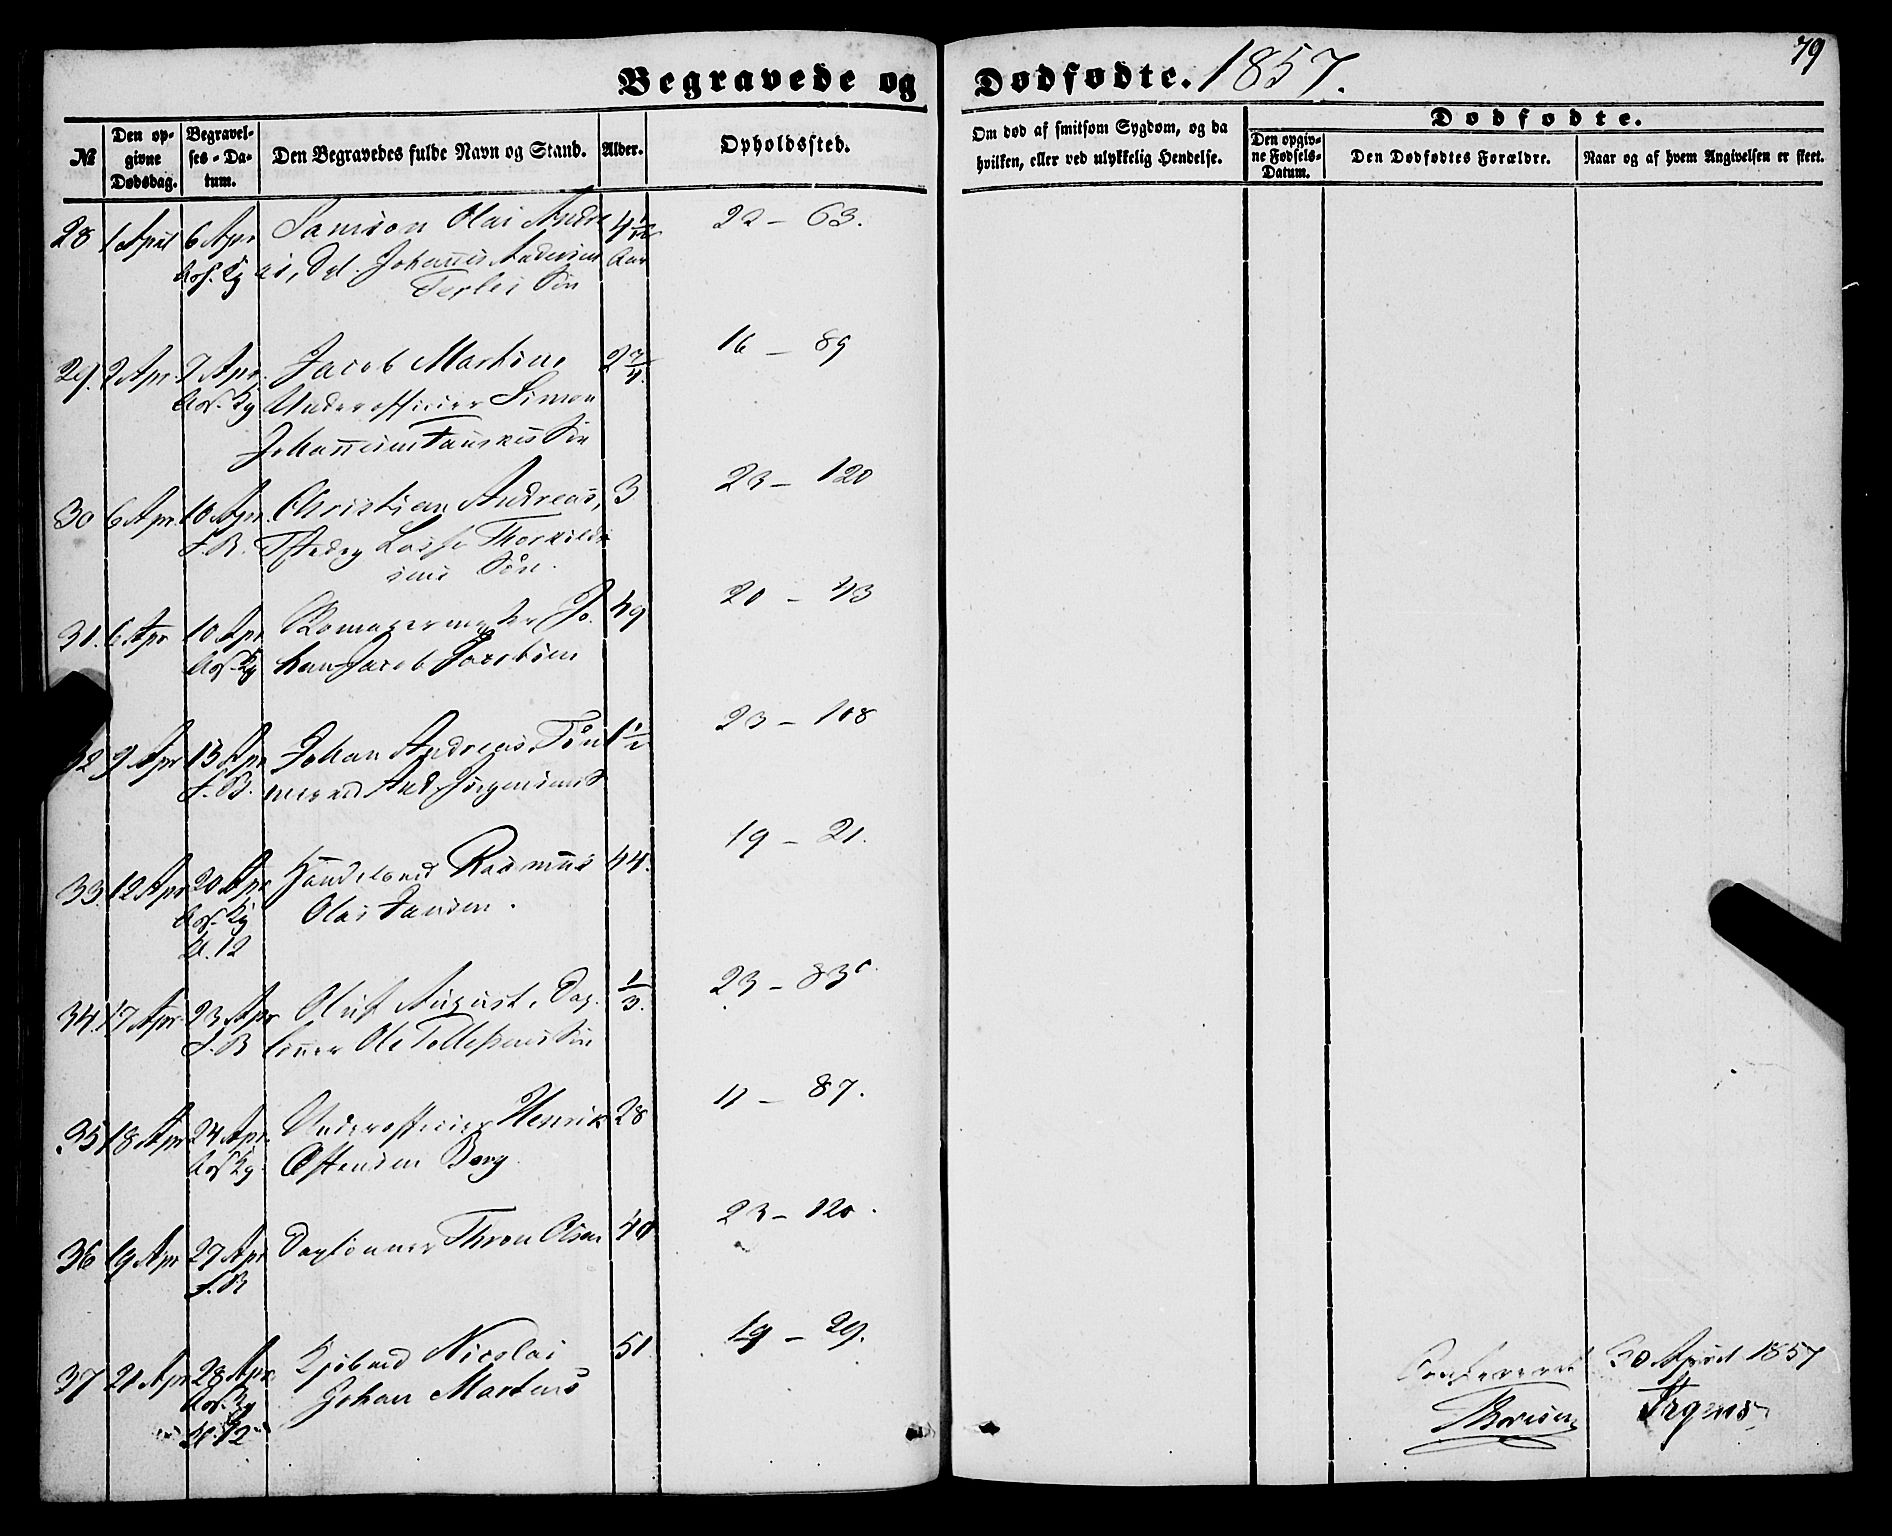 79
Begravede og Dødfødte. 1857.
№
Den opgivne Dødsdag.
Begravelses-Datum.
Den Begravedes fulde Navn og Stand.
Alder.
Opholdssted.
Om død af smitsom Sygdom, og da hvilken, eller ved ulykkelig Hendelse.
Dødfødte.
Den opgivne Fødsels-Datum.
Den Dødfødtes Forældre.
Naar og af hvem Angivelsen er skeet.
28 1 April 6 Apr Samson Olai Andre 4 1/12 22 – 63.
as, Johannes Andersen Aar
Søn
29. 2 Apr. 7 Apr. Jacob Martin 2 3/4 16 – 89
Underofficier Simon
Johannesen Søn
30 6 Apr. 10 Apr. Christian Andreas, 3 23 – 120
F. B. Thorkild
sens Søn.
31. 6 Apr 10 Apr Jo- 49 20 – 43
han Jacob Jacobsen
32 9 Apr 13 Apr Johan Andreas, Tøm 1 1/2 23 – 108
F. B. mermd And. Jørgensens S
33. 12 Apr 20 Apr Handelsmd Rasmus 44. 19 – 21.
Olai Jansen.
Kl. 12
34. 17 Apr 23 Apr Oluf August, Dag- 1/3. 23 – 83c.
F. B lønner Ole Tollefsens Søn
35 18 Apr 24 Apr. Underofficier Henrik 28 11 – 87.
Østensen Berg.
36 19 Apr 27 Apr Daglønner Thron Olsen 40 23 – 120.
F. B
37 21 Apr 28 Apr. Kjøbmd Nicolai 51 19 – 29.
Johan Martens
Kl. 12
Confereret 30 April 1857
Thoresen Irgens